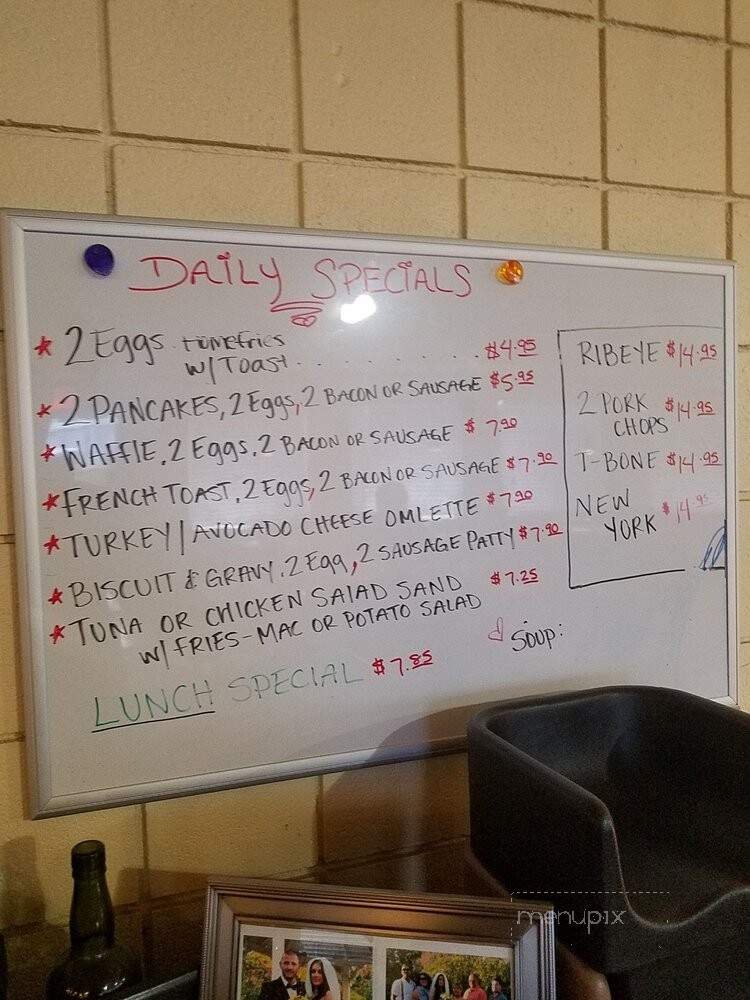 DAILY SPECIALS
* 2 Eggs Homefries
w/ TOAST . . . . . . . $4.95
* 2 PANCAKES, 2 Eggs, 2 BACON OR SAUSAGE $5.95
* WAFFIE, 2 Eggs, 2 BACON OR SAUSAGE $7.90
* FRENCH TOAST, 2 Eggs, 2 BACON OR SAUSAGE $7.90
* TURKEY / AVOCADO CHEESE OMLETTE $7.90
* BISCUIT & GRAVY, 2 Egg, 2 SAUSAGE PATTY $7.90
* TUNA OR CHICKEN SALAD SAND $7.25
w/ FRIES - MAC OR POTATO SALAD
LUNCH SPECIAL $7.85
RIBEYE $14.95
2 PORK CHOPS $14.95
T-BONE $14.95
NEW YORK $14.95
SOUP:
menupix